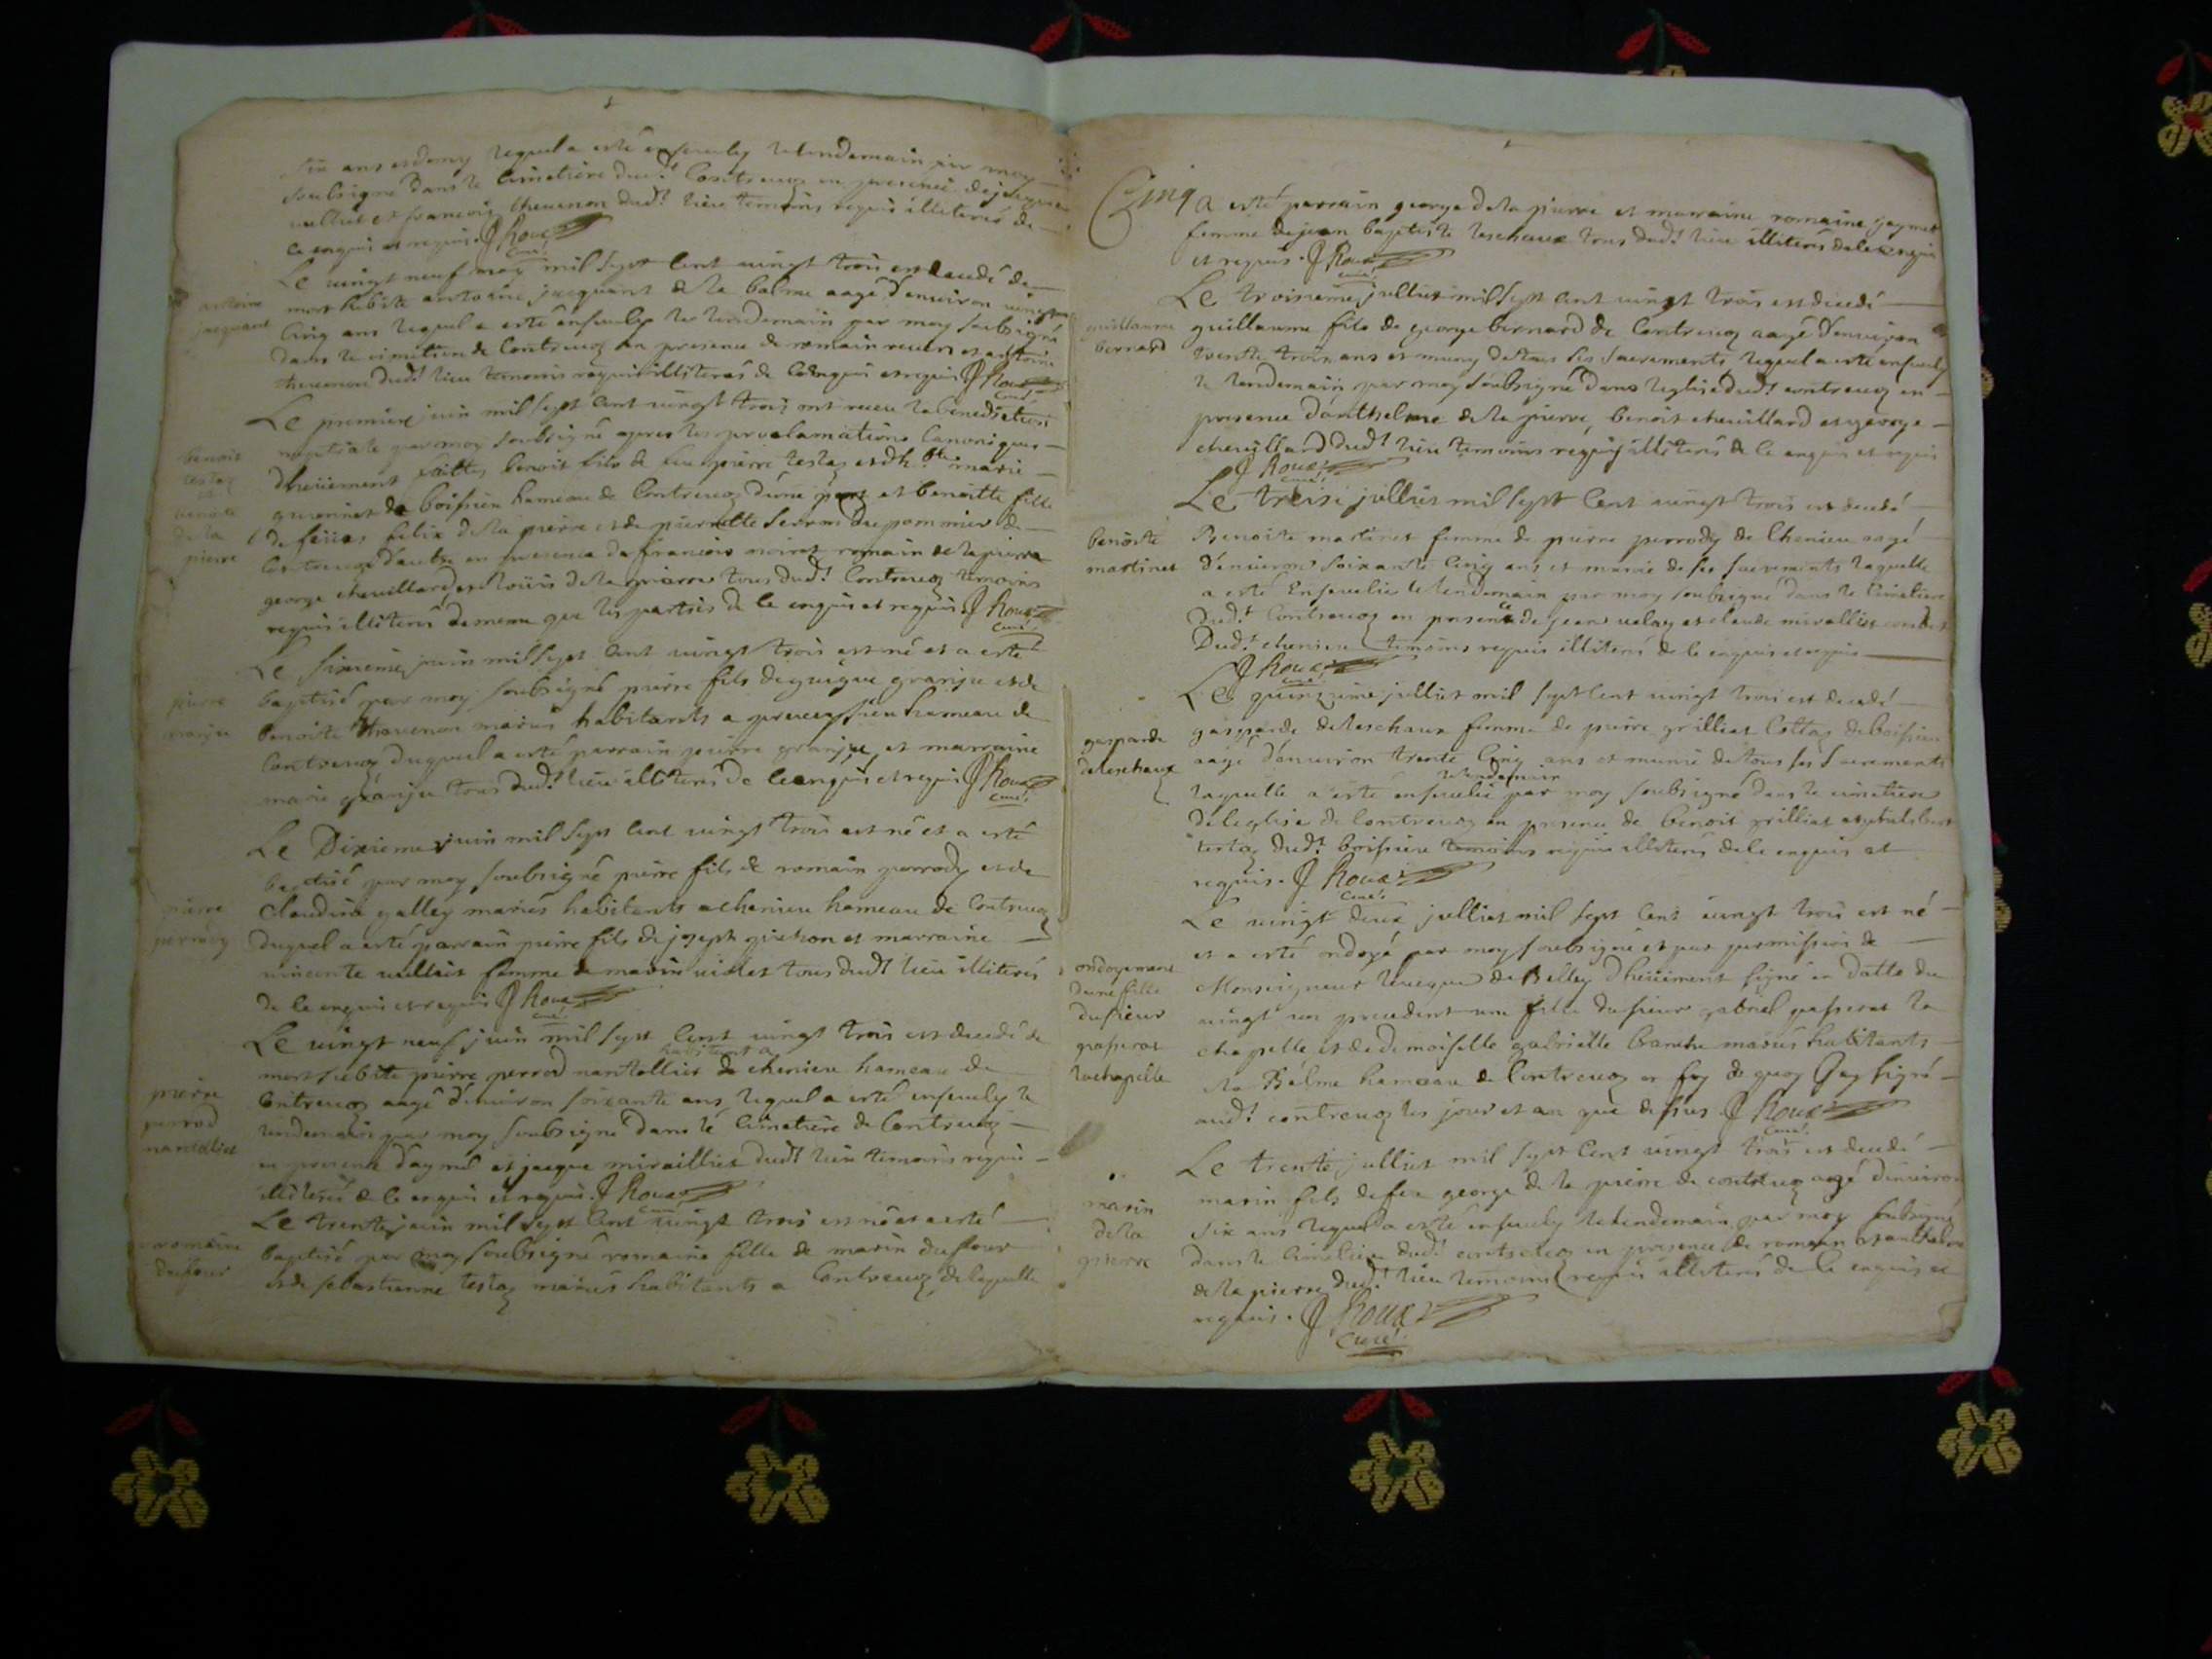 six ans et demy lequel a esté ensevely le lendemain par moy
soubsigné dans le cimetiere dud.t Contrevoz en presence de jacque
vulliet et francois thevenon dud.t lieu temoins requis illiterés de
ce enquis et requis. J Roux
curé
Le vingt neuf may mil sept cent vingt trois est decedé de
antoine
jacquant
mort subite antoine jacquant de la balme aagé d'environ vingt
cinq ans lequel a esté ensevely le lendemain par moy soubsigné
dans le cimetiere de Contrevoz en presence de romain et antoine
thevenon dud.t lieu temoins requis illiterés de ce enquis et requis J Roux
curé
Le premier juin mil sept cent vingt trois ont receu la benediction
benoit
testaz
et
benoite
de la
pierre
nuptiale par moy soubsigné apres les proclamations canoniques
dheüement faittes benoit fils de feu pierre testaz et d'h.ble marie
de boissieu hameau de Contrevoz d'une part et benoitte fille
de feüs felix de la pierre et de pierrette
Contrevoz d'autre en presence de francois romain de la pierre
george chevillard et loüis de la pierre tous dud.t Contrevoz temoins
requis illiterés de meme que les parties de ce enquis et requis J Roux
curé
Le sixieme juin mil sept cent vingt trois est né et a esté
pierre
granju
baptisé par moy soubsigné pierre fils de guigue granju et de
benoite thevenon mariés habitants a preveyssieu hameau de
Contrevoz duquel a esté parrain pierre granju et marraine
marie granju tous dud.t lieu illiterés de ce enquis et requis J Roux
curé
Le Dixieme juin mil sept cent vingt trois est né et a esté
pierre
perrody
baptisé par moy soubsigné pierre fils de romain perrody et de
Claudine galley mariés habitants a chenieu hameau de Contrevoz
duquel a esté parrain pierre fils de joseph guichon et marraine
vincente vulliet femme de marin violet tous dud.t lieu illiterés
de ce enquis et requis J Roux
curé
Le vingt neuf juin mil sept cent vingt trois est decedé de
habitant a
pierre
perrod
nantelliet
mort subite pierre perrod nantelliet de chenieu hameau de
Contrevoz aagé d'environ soixante ans lequel a esté ensevely le
lendemain par moy soubsigné dans le cimetiere de Contrevoz
en presence d'aymé et jacque mirailliet dud.t lieu temoins requis
illiterés de ce enquis et requis. J Roux
curé
Le trente juin mil sept cent vingt trois est né et a esté
romaine
dufour
baptisé par moy soubsigné romaine fille de marin dufour
et de sebastienne testaz mariés habitants a Contrevoz de laquelle
Cinq
a esté parrain george de la pierre et marraine romaine jaymet
femme de jean baptiste leschaux tous dud.t lieu illiterés de ce enquis
et requis. J Roux
curé
Le troisieme julliet mil sept cent vingt trois est decedé
guillaume
bernard
guillaume fils de george bernard de Contrevoz aagé d'environ
trente trois ans et muny de tous ses sacrements lequel a esté ensevely
le lendemain par moy soubsigné dans leglise dud.t contrevoz en
presence d'anthelme de la pierre, benoit chevillard et george
chevillard dud.t lieu temoins requis illiterés de ce enquis et requis
J Roux
curé
Le treize julliet mil sept cent vingt trois est decedé
benoite
martinet
Benoite martinet femme de pierre perrody de Chenieu aagé
d'environ soixante cinq ans et munie de ses sacrements laquelle
a esté Ensevelie le lendemain par moy soubsigné dans le cimetiere
Dud.t Contrevoz en presence de jean velay et claude miralliet
Dud.t chenieu temoins requis illiterés de ce enquis et requis
J Roux
curé
Le quinzieme julliet mil sept cent vingt trois est decedé
gasparde
deleschaux
gasparde deleschaux femme de pierre grilliet Cottaz de boissieu
aagé d'environ trente cinq ans et munie de tous ses sacrements
le lendemain
laquelle a esté ensevelie par moy soubsigné dans le cimetiere
de leglise de Contrevoz en presence de benoit grilliet et
testaz dud.t boissieu temoins requis illiterés de ce enquis et
requis. J Roux
curé
Le vingt deux julliet mil sept cent vingt trois est né
ondoyement
dune fille
du sieur
passerat
lachapelle
et a esté ondoyé par moy soubsigné et par permission de
Monseigneur leveque de Belley dheüement signé en datte du
vingt un precedent une fille du sieur gabriel passerat la
chapelle et de demoiselle gabrielle mariés habitants
la Balme hameau de Contrevoz en foy de quoy Jay signé
aud.t contrevoz les jour et an que dessus. J Roux
curé
Le trente julliet mil sept cent vingt trois est decedé
marin
de la
pierre
marin fils de feu george de la pierre de contrevoz aagé d'environ
six ans lequel a esté ensevely le lendemain par moy soubsigné
dans le cimetiere dud.t contrevoz en presence de romain et anthelme
de la pierre dud.t lieu temoins requis illiterés de ce enquis et
requis. J Roux
Curé